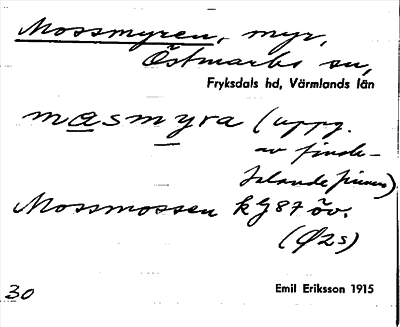 Mossmyren, myr,
Östmarks sn,
Fryksdals hd, Värmlands län
masmyra (uppg.
av finde-
talande finnar)
Mossmossen kg 87 öv.
(Ø2s)
30
Emil Eriksson 1915